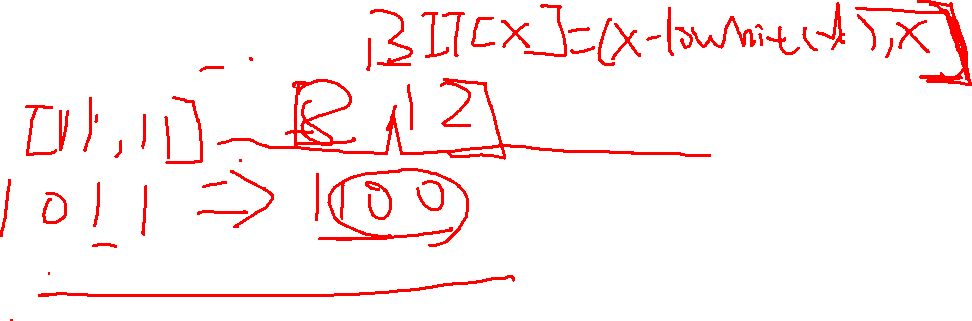 BIT[x]=(x-lowbit(x),x]
[11,11] [8,12]
1011 ⇒ 1100